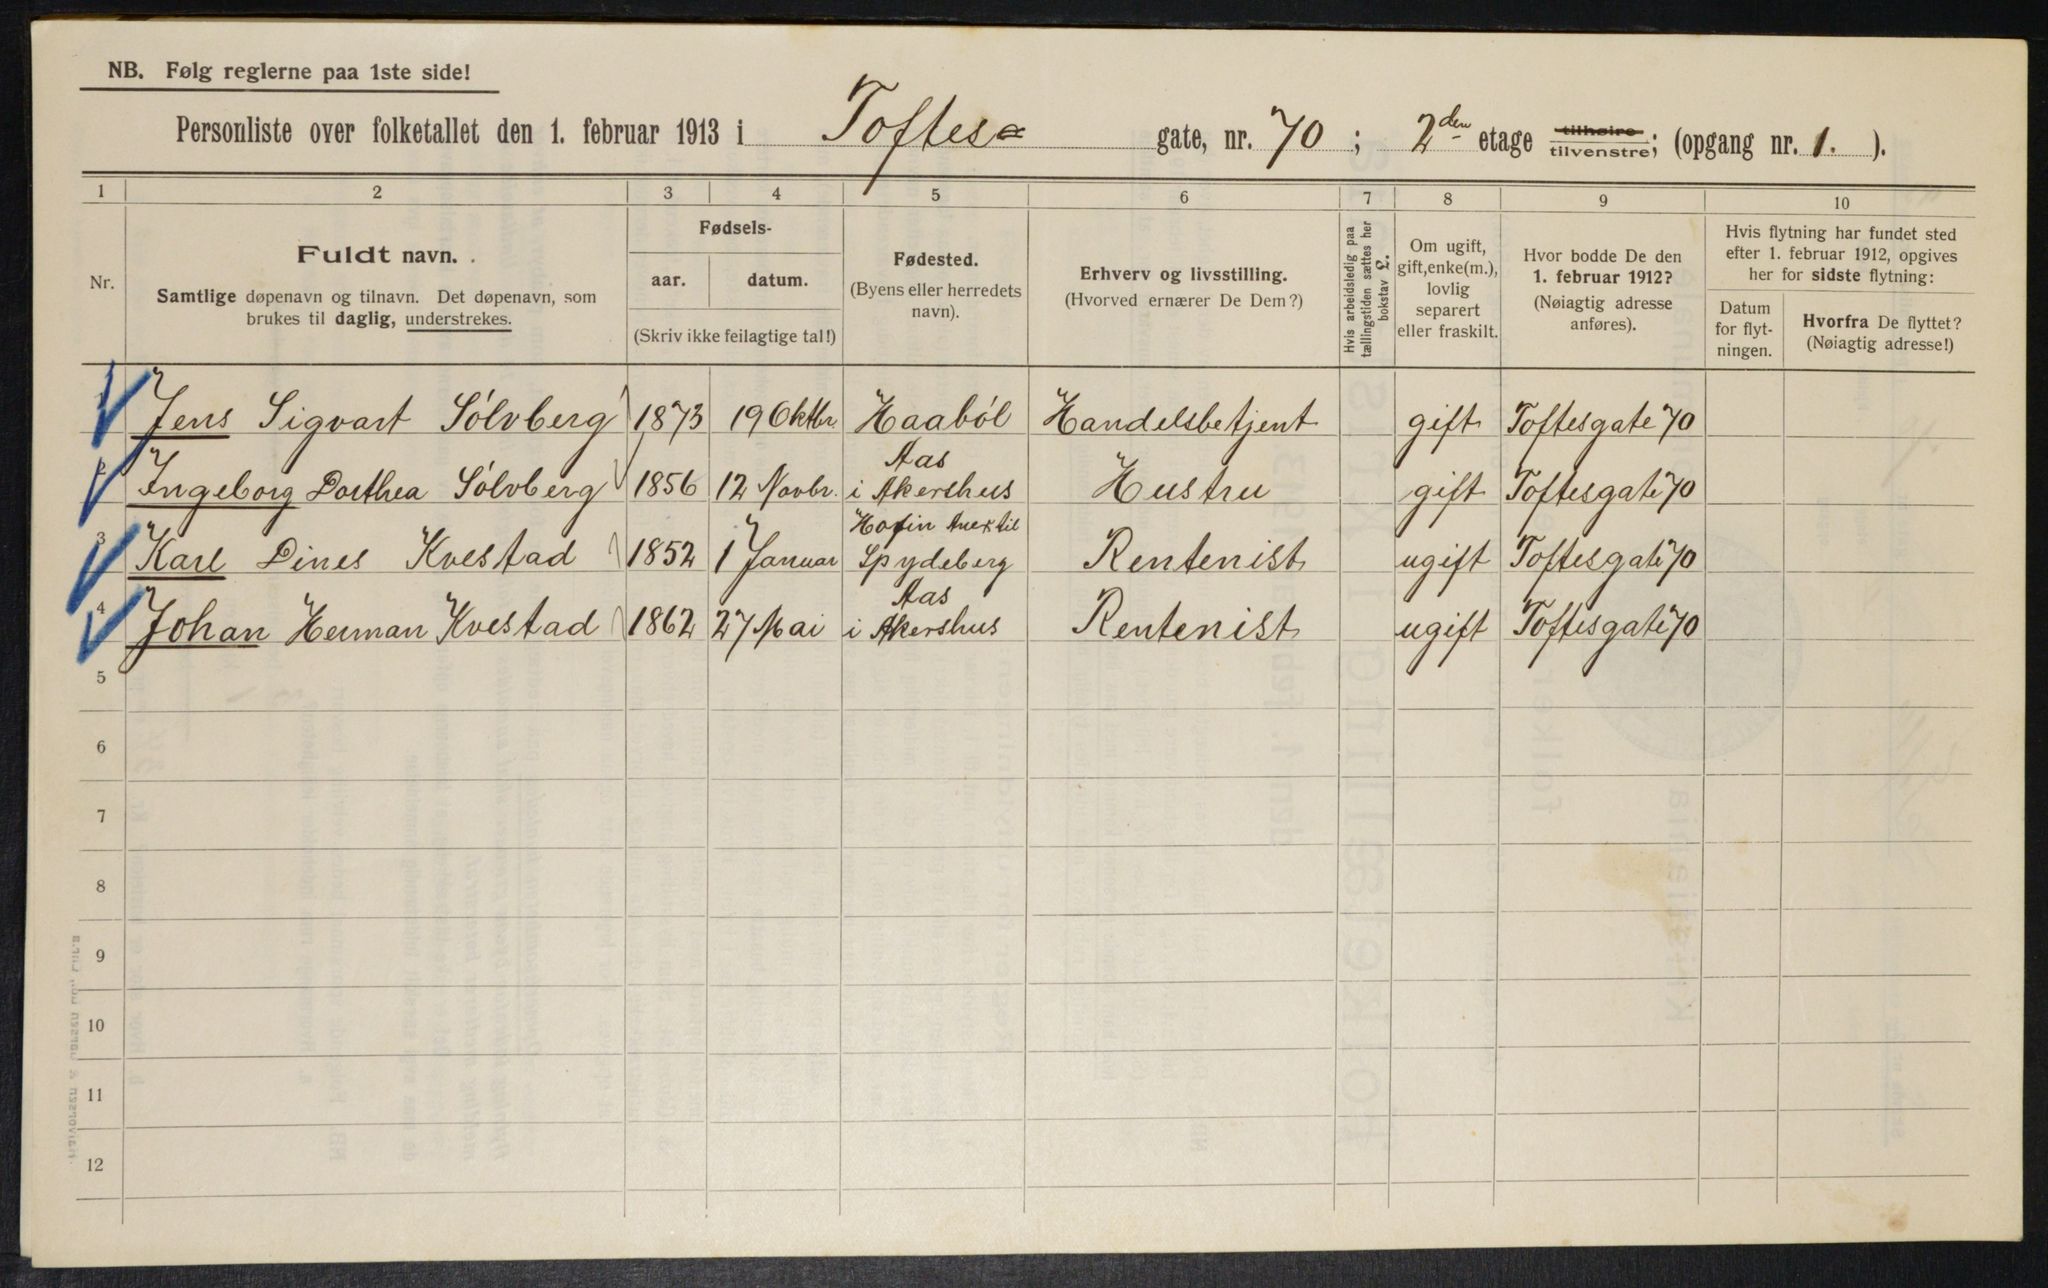 NB. Følg reglerne paa 1ste side!
Personliste over folketallet den 1. februar 1913 i Toftes gate, nr. 70 ; 2den etage tilhøire tilvenstre; (opgang nr. 1. ).
1 2 3 4 5 6 7 8 9 10
Nr.
Fuldt navn.
Samtlige døpenavn og tilnavn. Det døpenavn, som
brukes til daglig, understrekes.
Fødsels-
aar. datum.
(Skriv ikke feilagtige tal!)
Fødested.
(Byens eller herredets
navn).
Erhverv og livsstilling.
(Hvorved ernærer De Dem?)
Hvis arbeidsledig paa
tællingstiden sættes her
bokstav L.
Om ugift,
gift, enke(m.),
lovlig
separert
eller fraskilt.
Hvor bodde De den
1. februar 1912?
(Nøiagtig adresse
anføres).
Hvis flytning har fundet sted
efter 1. februar 1912, opgives
her for sidste flytning:
Datum
for flyt-
ningen.
Hvorfra De flyttet?
(Nøiagtig adresse!)
1 Jens Sigvart Sólvberg 1873 19 Oktbr. Haaból Handelsbetjent gift Toftesgate 70
Aas
2 Ingeborg Dorthea Sólvberg 1856 12 Novbr. i Akershus Hustru gift Toftesgate 70
til
3 Karl Dines Kvestad 1852 1 Januar Spydeberg Rentenist ugift Toftesgate 70
Aas
4 Johan Herman Kvestad 1862 27 Mai i Akershus Rentenist ugift Toftesgate 70
5
6
7
8
9
10
11
12